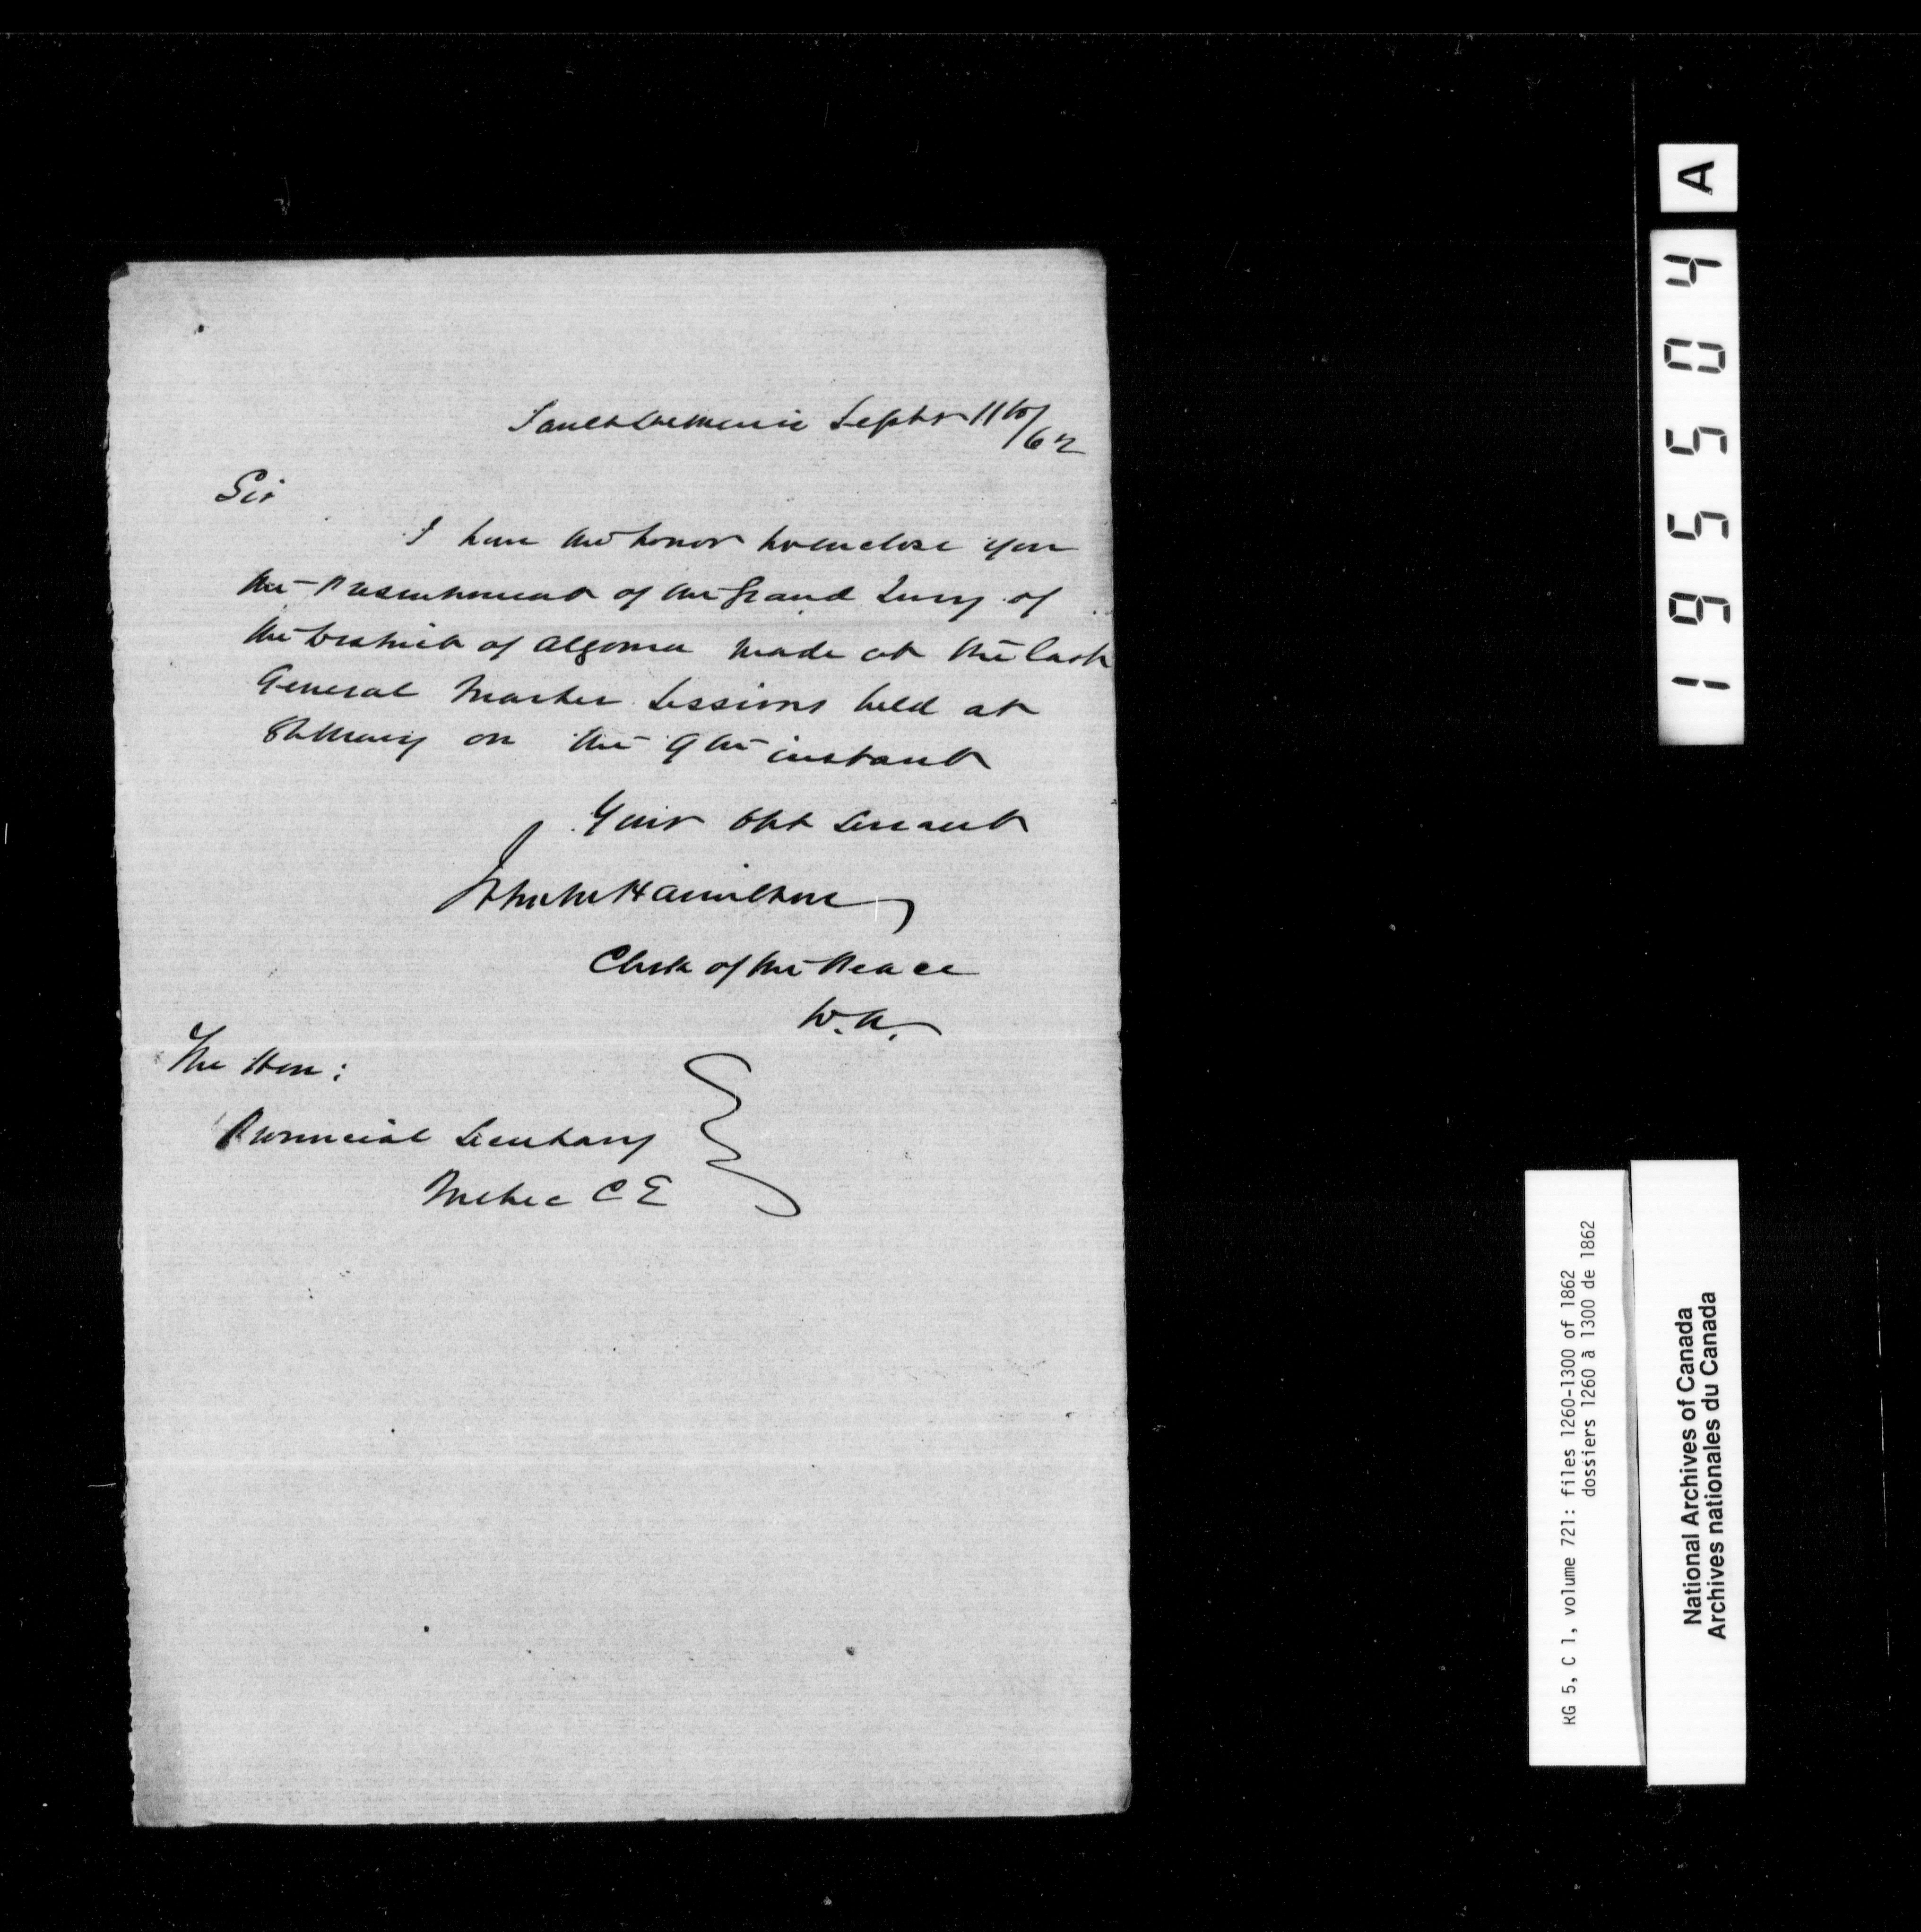 Sault Ste Marie Septr 11th/62
Sir
I have the honor to enclose you
the Presentment of the Grand Jury of
the District of Algoma made at the last
General Quarter Sessions held at
St Mary on the 9th instant
Your Obt Servant
John M Hamilton
Clerk of the Peace
D.A.
The Hon:
Provincial Secretary
Quebec C E
A
195504
RG 5, C 1, volume 721: files 1260-1300 of 1862
dossiers 1260 à 1300 de 1862
National Archives of Canada
Archives nationales du Canada